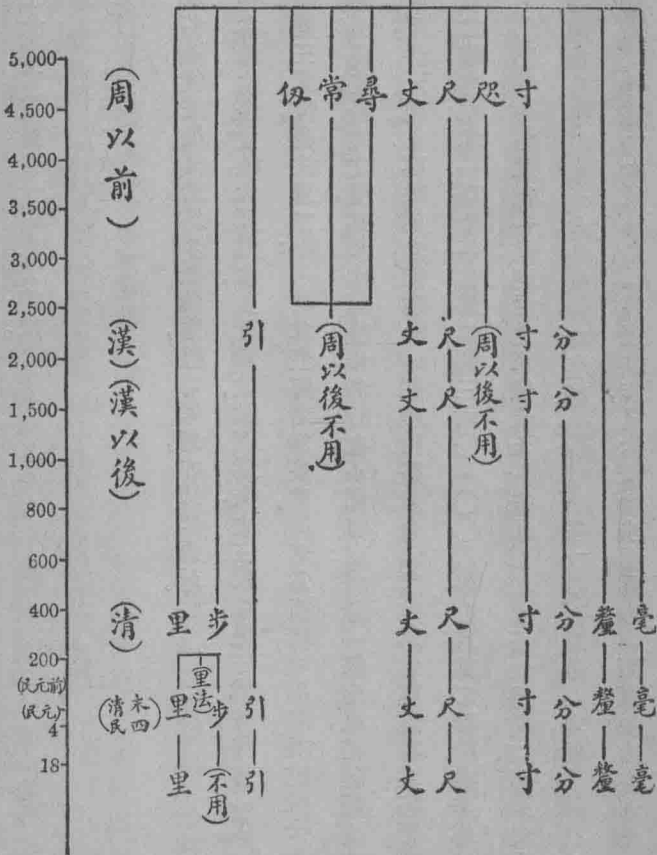 5,000
4,500
4,000
3,500
3,000
2,500
2,000
1,500
1,000
800
600
400
200
(民元前)
(民元)
4
18
(周以前)
仞 常 尋 丈 尺 咫 寸
(漢)
引 丈 尺 寸 分
(周以後不用)
(周以後不用)
(漢以後)
丈 尺 寸 分
(清)
里 步 丈 尺 寸 分 釐 毫
(里法)
(清末民四)
里 步 引 丈 尺 寸 分 釐 毫
里 (不用) 引 丈 尺 寸 分 釐 毫